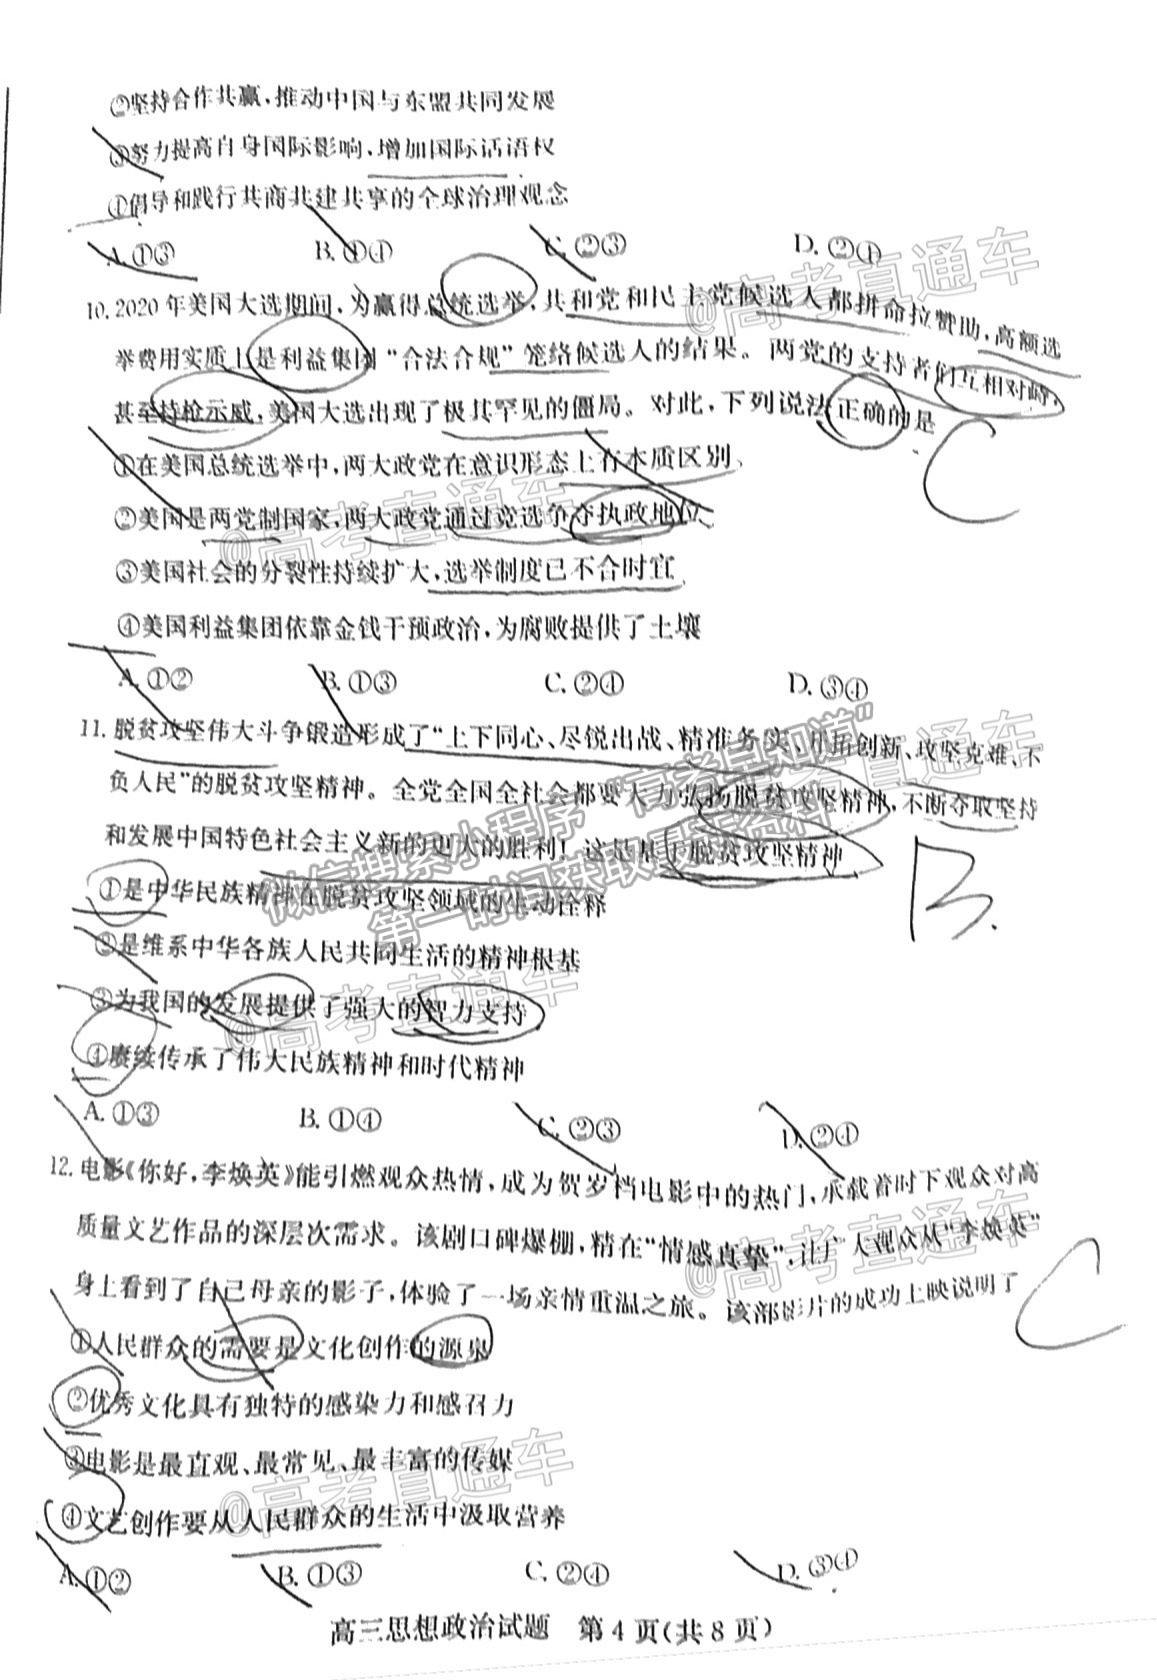 ②坚持合作共赢，推动中国与东盟共同发展
③努力提高自身国际影响，增加国际话语权
④倡导和践行共商共建共享的全球治理观念
A.①③ B.①④ C.②③ D.②④
10.2020年美国大选期间，为赢得总统选举，共和党和民主党候选人都拼命拉赞助，高额选
举费用实质上是利益集团“合法合规”笼络候选人的结果。两党的支持者们互相对峙，
甚至持枪示威，美国大选出现了极其罕见的僵局。对此，下列说法正确的是
C
①在美国总统选举中，两大政党在意识形态上有本质区别
②美国是两党制国家，两大政党通过竞选争夺执政地位
③美国社会的分裂性持续扩大，选举制度已不合时宜
④美国利益集团依靠金钱干预政治，为腐败提供了土壤
A.①② B.①③ C.②④ D.③④
11.脱贫攻坚伟大斗争锻造形成了“上下同心、尽锐出战、精准务实、开拓创新、攻坚克难、不
负人民”的脱贫攻坚精神。全党全国全社会都要大力弘扬脱贫攻坚精神，不断夺取坚持
和发展中国特色社会主义新的更大的胜利！这是基于脱贫攻坚精神
B.
①是中华民族精神在脱贫攻坚领域的生动诠释
②是维系中华各族人民共同生活的精神根基
③为我国的发展提供了强大的智力支持
④赓续传承了伟大民族精神和时代精神
A.①③ B.①④ C.②③ D.②④
12.电影《你好，李焕英》能引燃观众热情，成为贺岁档电影中的热门，承载着时下观众对高
质量文艺作品的深层次需求。该剧口碑爆棚，精在“情感真挚”，让广大观众从“李焕英”
身上看到了自己母亲的影子，体验了一场亲情重温之旅。该部影片的成功上映说明了
C
①人民群众的需要是文化创作的源泉
②优秀文化具有独特的感染力和感召力
③电影是最直观、最常见、最丰富的传媒
④文艺创作要从人民群众的生活中汲取营养
A.①② B.①③ C.②④ D.③④
高三思想政治试题 第4页(共8页)
@高考直通车
@高考直通车
@高考直通车
微信搜索小程序“高考早知道”
第一时间获取最新资料
@高考直通车
@高考直通车
@高考直通车